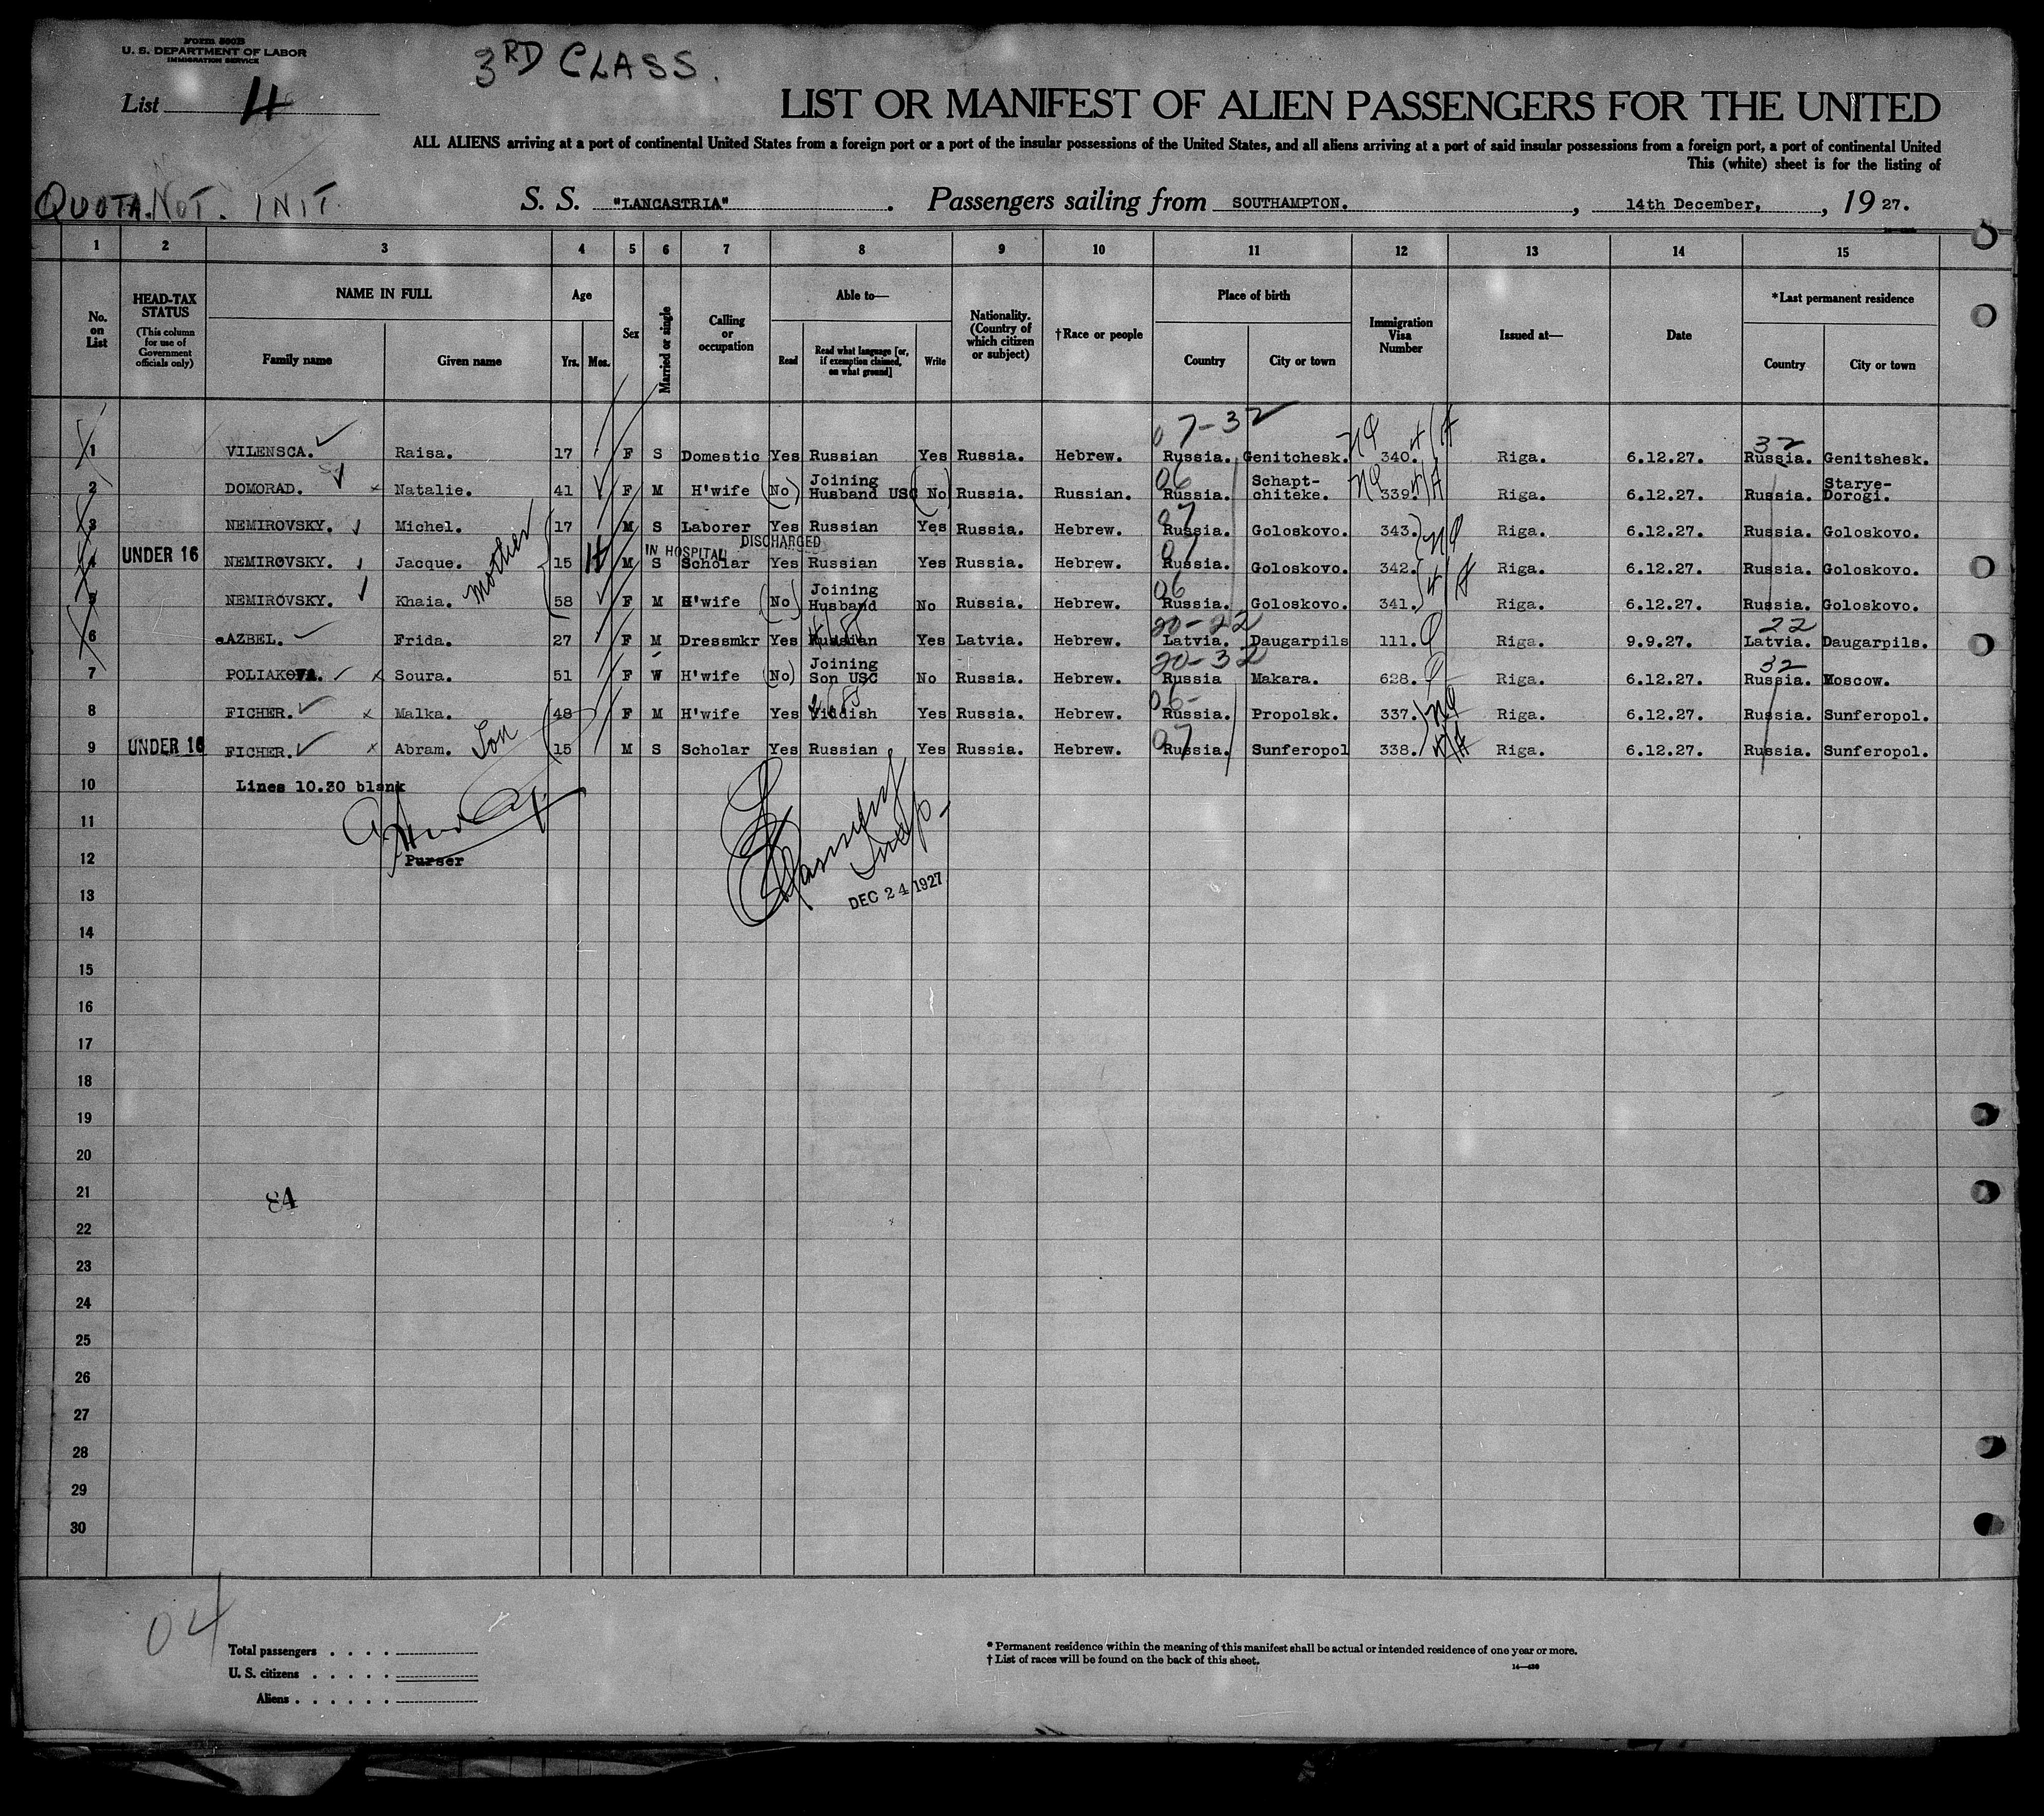 Form 500B
U. S. DEPARTMENT OF LABOR
IMMIGRATION SERVICE
3RD CLASS.
List 4
LIST OR MANIFEST OF ALIEN PASSENGERS FOR THE UNITED
ALL ALIENS arriving at a port of continental United States from a foreign port or a port of the insular possessions of the United States, and all aliens arriving at a port of said insular possessions from a foreign port, a port of continental United
This (white) sheet is for the listing of
QUOTA. NOT. INIT.
S. S. "LANCASTRIA" . Passengers sailing from SOUTHAMPTON. , 14th December. , 19 27.
1 2 3 4 5 6 7 8 9 10 11 12 13 14 15
No. on List
HEAD-TAX STATUS (This column for use of Government officials only)
NAME IN FULL
Family name Given name
Age
Yrs. Mos.
Sex
Married or single
Calling or occupation
Able to—
Read
Read what language [or, if exemption claimed, on what ground]
Write
Nationality. (Country of which citizen or subject)
†Race or people
Place of birth
Country City or town
Immigration Visa Number
Issued at—
Date
*Last permanent residence
Country City or town
07-32 NQ 4/A 32
1 VILENSCA. Raisa. 17 F S Domestic Yes Russian Yes Russia. Hebrew. Russia. Genitchesk. 340. Riga. 6.12.27. Russia. Genitshesk.
06 NQ 4/A
2 DOMORAD. Natalie. 41 F M H'wife (No) Joining Husband USC (No) Russia. Russian. Russia. Schapt-chiteke. 339. Riga. 6.12.27. Russia. Starye-Dorogi.
07
3 NEMIROVSKY. Michel. 17 M S Laborer Yes Russian Yes Russia. Hebrew. Russia. Goloskovo. 343. NQ Riga. 6.12.27. Russia. Goloskovo.
IN HOSPITAL DISCHARGED
07
4 UNDER 16 NEMIROVSKY. Jacque. 15 H M S Scholar Yes Russian Yes Russia. Hebrew. Russia. Goloskovo. 342. 4/A Riga. 6.12.27. Russia. Goloskovo.
06
5 NEMIROVSKY. Khaia. mother 58 F M H'wife (No) Joining Husband No Russia. Hebrew. Russia. Goloskovo. 341. Riga. 6.12.27. Russia. Goloskovo.
20-22 22
6 AZBEL. Frida. 27 F M Dressmkr Yes Russian Yes Latvia. Hebrew. Latvia. Daugarpils 111. Q Riga. 9.9.27. Latvia. Daugarpils.
20-32 32
7 POLIAKOVA. Soura. 51 F W H'wife (No) Joining Son USC No Russia. Hebrew. Russia Makara. 628. Q Riga. 6.12.27. Russia. Moscow.
06-
8 FICHER. Malka. 48 F M H'wife Yes Yiddish Yes Russia. Hebrew. Russia. Propolsk. 337. NQ Riga. 6.12.27. Russia. Sunferopol.
07
9 UNDER 16 FICHER. Abram. Son 15 M S Scholar Yes Russian Yes Russia. Hebrew. Russia. Sunferopol 338. 4/A Riga. 6.12.27. Russia. Sunferopol.
10 Lines 10.30 blank
11
12 Purser
Insp.
DEC 24 1927
13
14
15
16
17
18
19
20
21
84
22
23
24
25
26
27
28
29
30
04
Total passengers . . . .
U. S. citizens . . . . .
Aliens . . . . . .
* Permanent residence within the meaning of this manifest shall be actual or intended residence of one year or more.
† List of races will be found on the back of this sheet.